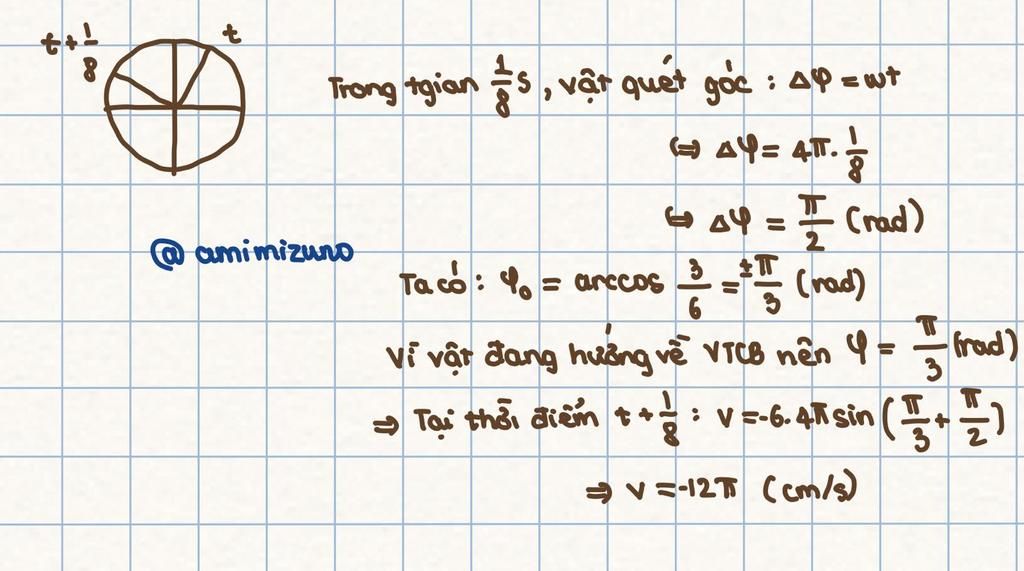 t + 1/8
t
Trong tgian 1/8 s, vật quét góc : Δφ = ωt
⇔ Δφ = 4π. 1/8
⇔ Δφ = π/2 (rad)
@ amimizuno
Ta có : φ₀ = arccos 3/6 = ±π/3 (rad)
Vì vật đang hướng về VTCB nên φ = π/3 (rad)
⇒ Tại thời điểm t + 1/8 : v = -6. 4π sin (π/3 + π/2)
⇒ v = -12π (cm/s)